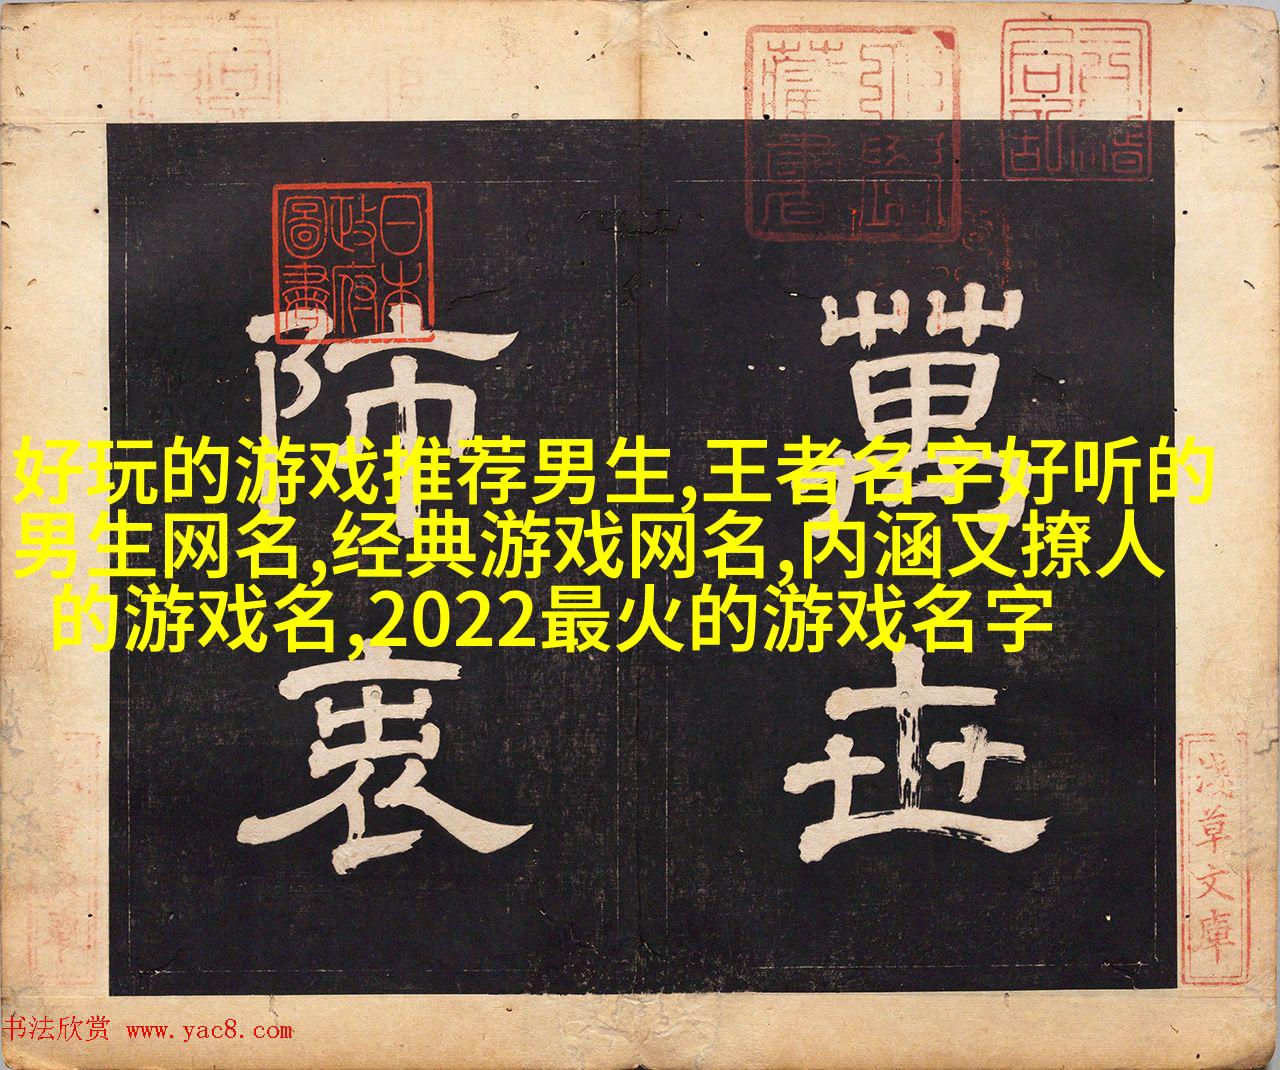 日本
政府
圖書
萬世
師表
好玩的游戏推荐男生,王者名字好听的
男生网名,经典游戏网名,内涵又撩人
的游戏名,2022最火的游戏名字
淺草文庫
书法欣赏 www.yac8.com